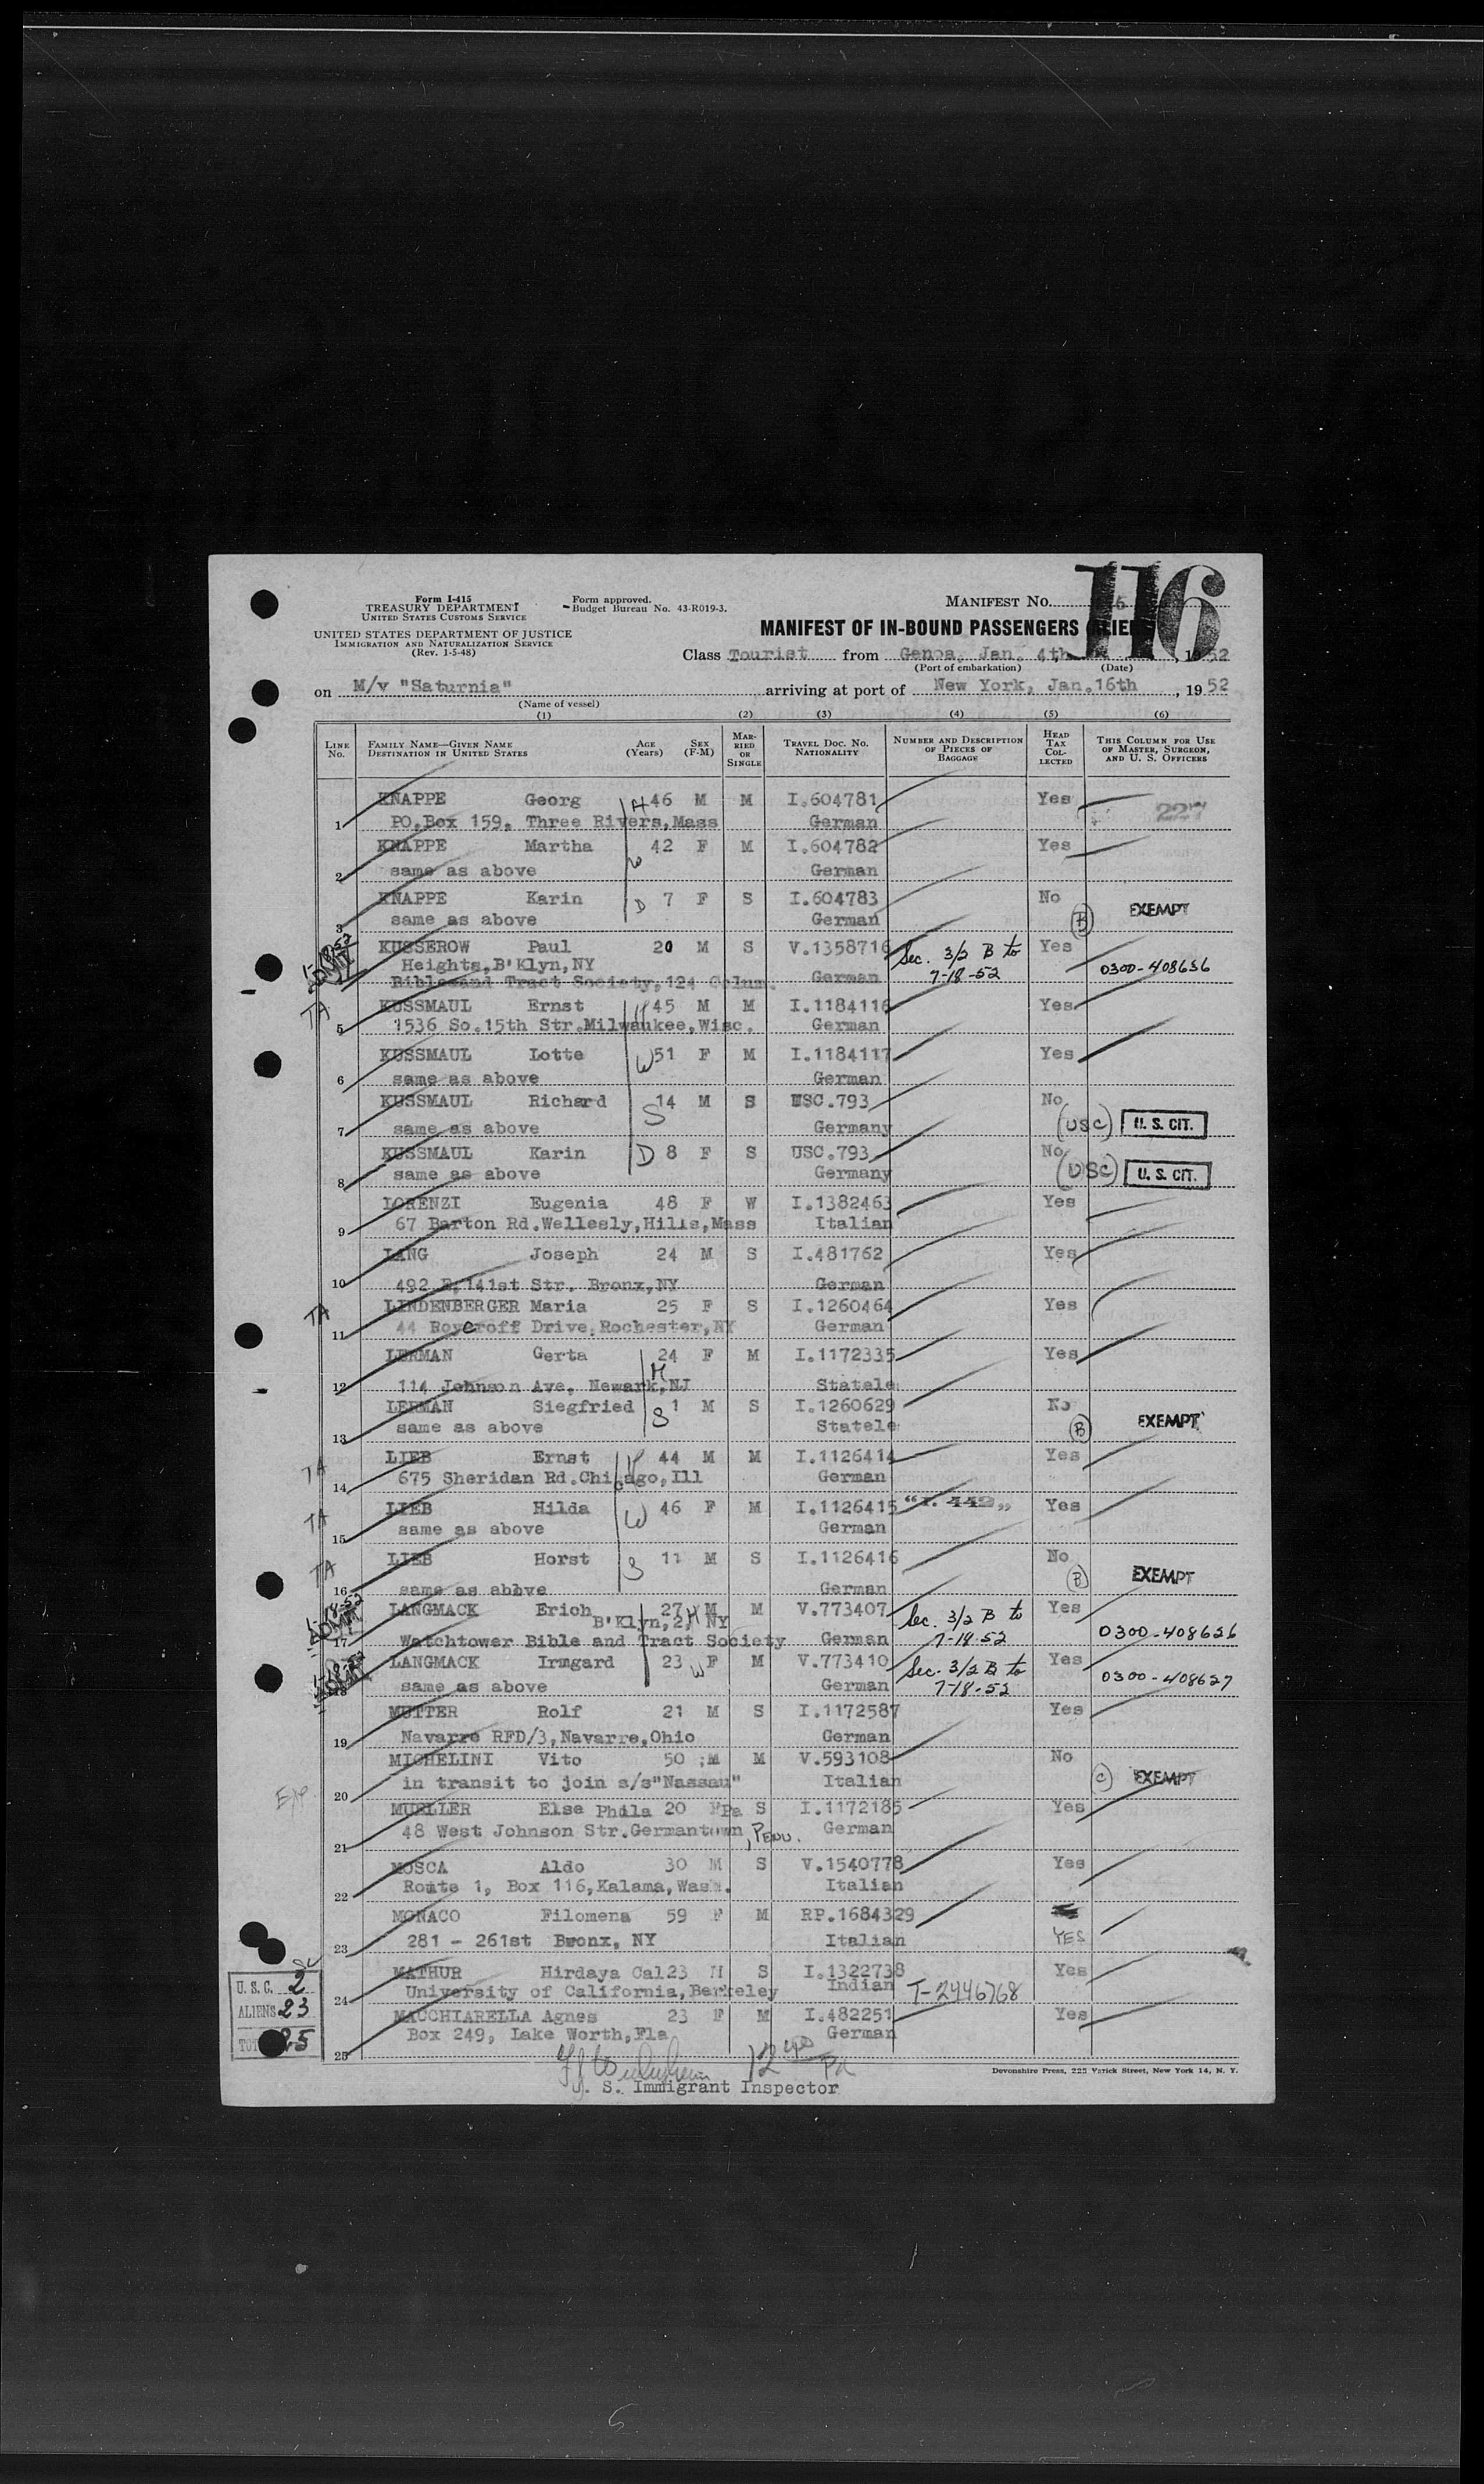 Form I-415
TREASURY DEPARTMENT
UNITED STATES CUSTOMS SERVICE
UNITED STATES DEPARTMENT OF JUSTICE
IMMIGRATION AND NATURALIZATION SERVICE
(Rev. 1-5-48)
Form approved.
Budget Bureau No. 43-R019-3.
MANIFEST NO.
116
MANIFEST OF IN-BOUND PASSENGERS
Class Tourist from Genoa, Jan. 4th, 1952
(Port of embarkation) (Date)
on M/v "Saturnia" arriving at port of New York, Jan.16th, 1952
(Name of vessel)
(1) (2) (3) (4) (5) (6)
LINE NO. FAMILY NAME—GIVEN NAME DESTINATION IN UNITED STATES AGE (Years) SEX (F-M) MARRIED OR SINGLE TRAVEL DOC. NO. NATIONALITY NUMBER AND DESCRIPTION OF PIECES OF BAGGAGE HEAD TAX COLLECTED THIS COLUMN FOR USE OF MASTER, SURGEON, AND U. S. OFFICERS
KNAPPE Georg H 46 M M I.604781 Yes 227
1 PO.Box 159, Three Rivers,Mass German
KNAPPE Martha W 42 F M I.604782 Yes
2 same as above German
KNAPPE Karin D 7 F S I.604783 No (B) EXEMPT
3 same as above German
KUSSEROW Paul 20 M S V.1358716 Sec. 3/2 B to Yes
1-18-52 ADMIT Heights,B'Klyn,NY 7-18-52 0300-408636
Bible and Tract Society,124 Colum. German
TA KUSSMAUL Ernst H 45 M M I.1184116 Yes
5 1536 So.15th Str.Milwaukee,Wisc. German
KUSSMAUL Lotte W 51 F M I.1184117 Yes
6 same as above German
KUSSMAUL Richard S 14 M S USC.793 No
7 same as above Germany (USC) U. S. CIT.
KUSSMAUL Karin D 8 F S USC.793 No
8 same as above Germany (USC) U. S. CIT.
LORENZI Eugenia 48 F W I.1382463 Yes
9 67 Barton Rd.Wellesly,Hills,Mass Italian
LANG Joseph 24 M S I.481762 Yes
10 492 E.141st Str. Bronx,NY German
TA LINDENBERGER Maria 25 F S I.1260464 Yes
11 44 Roycroff Drive,Rochester,NY German
LERMAN Gerta M 24 F M I.1172335 Yes
12 114 Johnson Ave, Newark,NJ Statele
LERMAN Siegfried S 1 M S I.1260629 No
13 same as above Statele (B) EXEMPT
TA LIEB Ernst H 44 M M I.1126414 Yes
14 675 Sheridan Rd.Chicago,Ill German
TA LIEB Hilda W 46 F M I.1126415 "I. 442" Yes
15 same as above German
TA LIEB Horst S 11 M S I.1126416 No
16 same as abbve German (B) EXEMPT
1-18-52 LANGMACK Erich 27 H M M V.773407 Sec. 3/2 B to Yes
ADMIT B'Klyn,2, NY
17 Watchtower Bible and Tract Society German 7-18-52 0300-408626
LANGMACK Irmgard 23 W F M V.773410 Sec. 3/2 B to Yes
18 same as above German 7-18-52 0300-408627
MUTTER Rolf 21 M S I.1172587 Yes
19 Navarre RFD/3,Navarre,Ohio German
MICHELINI Vito 50 ;M M V.593108 No
20 in transit to join s/s"Nassau" Italian (C) EXEMPT
MUELLER Else Phila 20 FPa S I.1172185 Yes
21 48 West Johnson Str.Germantown, Penn. German
MOSCA Aldo 30 M S V.1540778 Yes
22 Route 1, Box 116,Kalama,Wash. Italian
MONACO Filomena 59 F M RP.1684329
23 281 - 261st Bronx, NY Italian YES
MATHUR Hirdaya Cal 23 M S I.1322738 Yes
24 University of California,Berkeley Indian T-2446768
MACCHIARELLA Agnes 23 F M I.482251 Yes
25 Box 249, Lake Worth,Fla German
U. S. C. 2
ALIENS 23
25
U. S. Immigrant Inspector
Devonshire Press, 225 Varick Street, New York 14, N. Y.